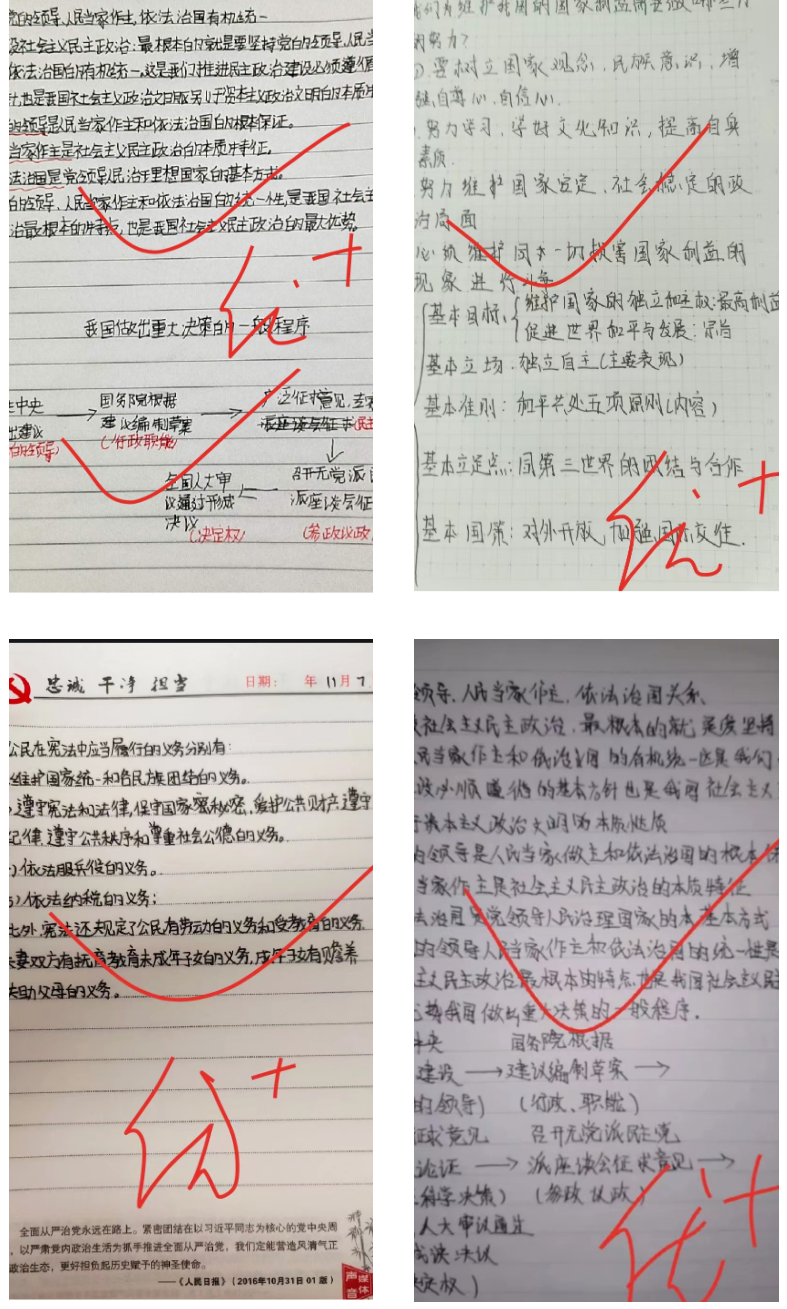 党的领导、人民当家作主、依法治国有机统一
设社会主义民主政治,最根本的就是要坚持党的领导、人民当
依法治国的有机统一。这是我们推进民主政治建设必须遵循
也是我国社会主义政治文明区别于资本主义政治文明的本质
的领导是人民当家作主和依法治国的根本保证。
当家作主是社会主义民主政治的本质特征。
法治国是党领导人民治理国家的基本方式。
的领导、人民当家作主和依法治国的统一性是我国社会主
治最根本的特点,也是我国社会主义民主政治的最大优势。
优+
我国做出重大决策的一般程序
中央
建议
的领导)
国务院根据
建议编制草案
(行政职能)
广泛征求意见,
召开无党派
派座谈会征
(参政议政
全国人大审
议通过形成
决议
(决定权)
我们为维护我国的国家利益需要做哪些方
的努力?
要树立国家观念,民族意识,增
强自尊心,自信心.
努力学习,学好文化知识,提高自身
素质.
努力维护国家安定、社会稳定的政
治局面
必须维护同一切损害国家利益的
现象进行斗争
基本目标:
维护国家的独立和主权:最高利益
促进世界和平与发展:宗旨
基本立场:独立自主(主要表现)
基本准则:和平共处五项原则(内容)
基本立足点:同第三世界的团结与合作
基本国策:对外开放,加强国际交往.
优+
忠诚 干净 担当
日期: 年 11 月 7
公民在宪法中应当履行的义务分别有:
维护国家统一和各民族团结的义务。
遵守宪法和法律,保守国家秘密,爱护公共财产,遵守
纪律,遵守公共秩序和尊重社会公德的义务。
依法服兵役的义务。
依法纳税的义务;
此外,宪法还规定了公民有劳动的义务和受教育的义务
夫妻双方有抚育教育未成年子女的义务,成年子女有赡养
扶助父母的义务。
优+
全面从严治党永远在路上。紧密团结在以习近平同志为核心的党中央周
,以严肃党内政治生活为抓手推进全面从严治党,我们定能营造风清气正
政治生态,更好担负起历史赋予的神圣使命。
——《人民日报》(2016年10月31日 01 版)
声音
媒体
领导、人民当家作主、依法治国关系、
社会主义民主政治,最根本的就是要坚持
民当家作主和依法治国的有机统一这是我们
设必须遵循的基本方针也是我国社会主义
于资本主义政治文明的本质性质
的领导是人民当家做主和依法治国的根本保
当家作主是社会主义民主政治的本质特征
法治国是党领导人民治理国家的本基本方式
的领导人民当家作主和依法治国的统一性是
主义民主政治最根本的特点也是我国社会主义民
我国做出重大决策的一般程序.
中央 国务院根据
建设 → 建议编制草案 →
的领导) (行政、职能)
征求意见 召开无党派民主党
论证 → 派座谈会征求意见 →
科学决策) (参政议政)
人大审议通过
决议
定权)
优+